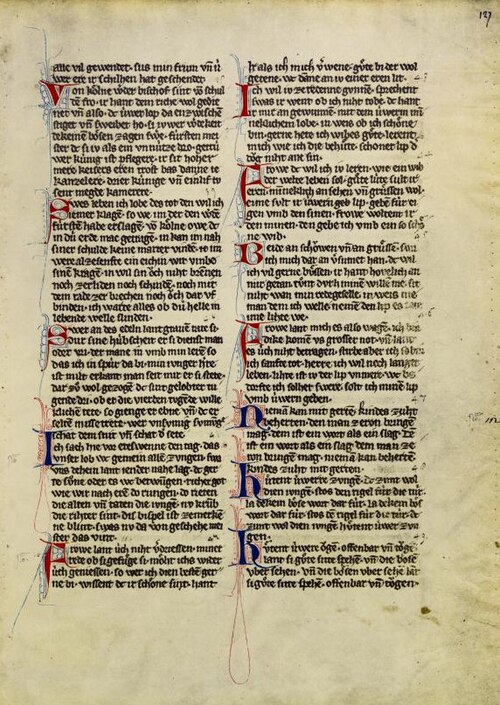 127
alle vil gewendet · sus min frum vn̄ ů
wer ere ir schilhen hat geschendet
Von kolne werder bischof sint vͦ schul
den fro · ir hant dem riche wol gedie
net vn̄ also · dc ůwer lop da enzwische
stiget vn̄ sweibet ho · si iv wer werdekeit
fúrsten meis
ter dc si iv als ein vnnútze dro · getrú
wer kúnig is pflegere · ir sit hoher
mere keisers eren trost bas danne ie
kanzelere · drier kúnige vn̄ einlif tv
sent megde kamerere
Swes leben ich lobe des tot den wil ich
iemer klagen · so we im der den werden
fúrsten habe erslagē vͦ kolne owe dc
in dú erde mac getragē · in kan im nah
siner schulde keine marter vinden · im
were alze senfte ein eichin wit vmbe
sinen kragē · in wil sin ǒch niht brēnen
noch zerliden noch schinden · noch mit
dem rade zer brechen noch ǒch dar vf
binden · ich warte alles ob dú helle in
lebende welle slinden ·
Swer an des edeln lantgraven rate si
dur sine húbscheit er si dienst man
oder vri · der mane in vmb min leren so
das ich in spúr da bi · min iunger h're
ist milt erkant man seit mir er si stete
dar zǒ wol gezogē · dc sint gelobter tu
gende drí · ob er die vierden tugende wil
lekliche tete · so gienge er ebne vn̄ dc er
selten missetrete · wer vnsumig sumūg
schat dem snit vn̄ schat d' sete
Ich sach hie vor etswenne den tag · das
vnser lob wc gemein allē zvngen · swa
vns dehein lant iender nahe lag · dc ger
te sǒne oder es wc betwūgen · richer got
wie wir nach erē do rungen · do rieten
die alten vn̄ taten die iungē · nv krūb
die rihter sint · dis bispel ist zemerken
ne blint · swas nv da von geschehe meis
ter das vint ·
Frowe lant úch niht v'driessen · miner
rede ob si gefůge si · mǒhte ichs wider
úch geniessen · so wer ich dien besten ger
ne bi · wissent dc ir schǒne sint · hant
Ir als ich mich v'wene · gůte bi der wol
getene · wc danne an iv einer eren lit
Ich wil iv ze redenne gvnnen · sprechent
swas ir went ob ich niht tobe · dc hant
ir mir an gewunnen · mit dem iuwerm mī
neklichem lobe · in weis ob ich schǒne
bin · gerne hete ich wibes gůte · lerent
mich wie ich die behůte · schǒner lip d'
tǒg niht ane sin ·
Frowe dc wil ich iv leren · wie ein wib
der welte leben sol · gůte lúte sult ir
eren · minneklich an sehen vn̄ grůssen wol ·
eime sult ir iuwern lip · gebē fúr ei
gen vmb den sinen · frowe woltent ir
den minen · den gebe ich vmb ein so schǒ
ne wib ·
Beide an schǒwen vn̄ an grůssen · swc
ich mich dar an v'sumet han · dc wil
ich vil gerne bůssen · ir hant hovelich an
mir getan · tůnt dvr iuwern willē me · sit
niht wan min redegeselle · in weis nie
man dem ich welle nemen den lip
ime lihte we ·
Frowe lant mich es also wagē · ich bin
dicke komē vs grosser not · vn̄ lant
es úch niht betragen · stirbe aber ich so bin
ich sanfte tot · herre ich wil noch langer
leben · lihte ist iv der lip vnmere · wc be
dorfte ich solher swere · solt ich minen lip
vmb úwern geben ·
Nieman kan mit gerten kindes zuht
beherten · den man zeren bringen
mag · dem ist ein wort als ein slag · de̅
ist ein wort als ein slag · dem man ze
ren bringē mag · nieman kan beherten
kindes zuht mit gerten ·
Hůtent úwerre zvnge · dc zimt wol
dien iungē · stos den rigel fúr die túr ·
la dekein bǒse wort dar fúr · la dekein bǒs
wort dar fúr · stos dē rigel fúr die túr · dc
zimt wol dien iungē · hůtent úwer zvn
gen ·
Hůtent úwere ǒgē · offenbar vn̄ tǒgē ·
lant si gůte sitte spehē · vn̄ die bǒse
vber sehen · vn̄ die bǒsen vber sehē · lat
si gůte sitte spehē · offenbar vn̄ tǒgen ·